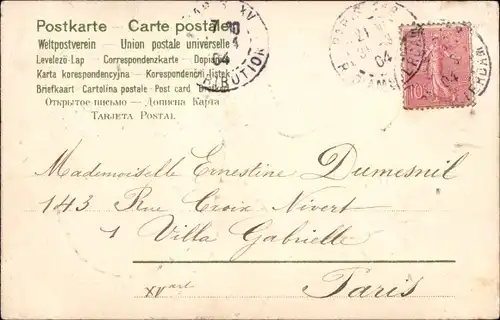 Postkarte - Carte postale
Weltpostverein - Union postale universelle
Levelező-Lap - Correspondenzkarte - Dopisnice
Karta korespondencyjna - Korespondenční lístek
Briefkaart - Cartolina postale - Post card - Brefkort
Открытое письмо - Дописна Карта
Tarjeta Postal
PARIS XV
7
04
DISTRIBUTION
PARIS
21
04
10
04
Mademoiselle Ernestine Dumesnil
143 Rue Croix Nivert
1 Villa Gabrielle
XVart Paris